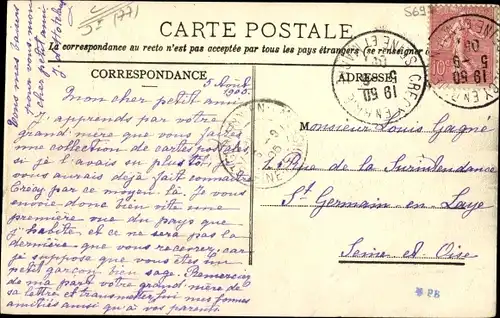 CARTE POSTALE
La correspondance au recto n'est pas acceptée par tous les pays étrangers (se renseigner
CORRESPONDANCE
ADRESSE
5 Août
Mon cher petit ami
J'apprends par votre
grand'mère que vous faites
une collection de cartes postales
si je l'avais su plus tôt
vous aurais déjà fait connaître
Crécy par ce moyen là. Je vous
envoie donc bien vite une
première vue du pays que
j'habite, et ce ne sera pas la
dernière que vous recevrez, car
je suppose que vous êtes un
petit garçon bien sage. Remerciez
de ma part votre grand'mère de
sa lettre et transmettez lui mes bonnes
amitiés ainsi qu'à vos parents
mes baisers
pour vous mon
cher petit ami
Monsieur Louis Gagné
2 Rue de la Surintendance
St Germain en Laye
Seine et Oise
CRECY-EN-BRIE
19 50
5 - 9
05
PB